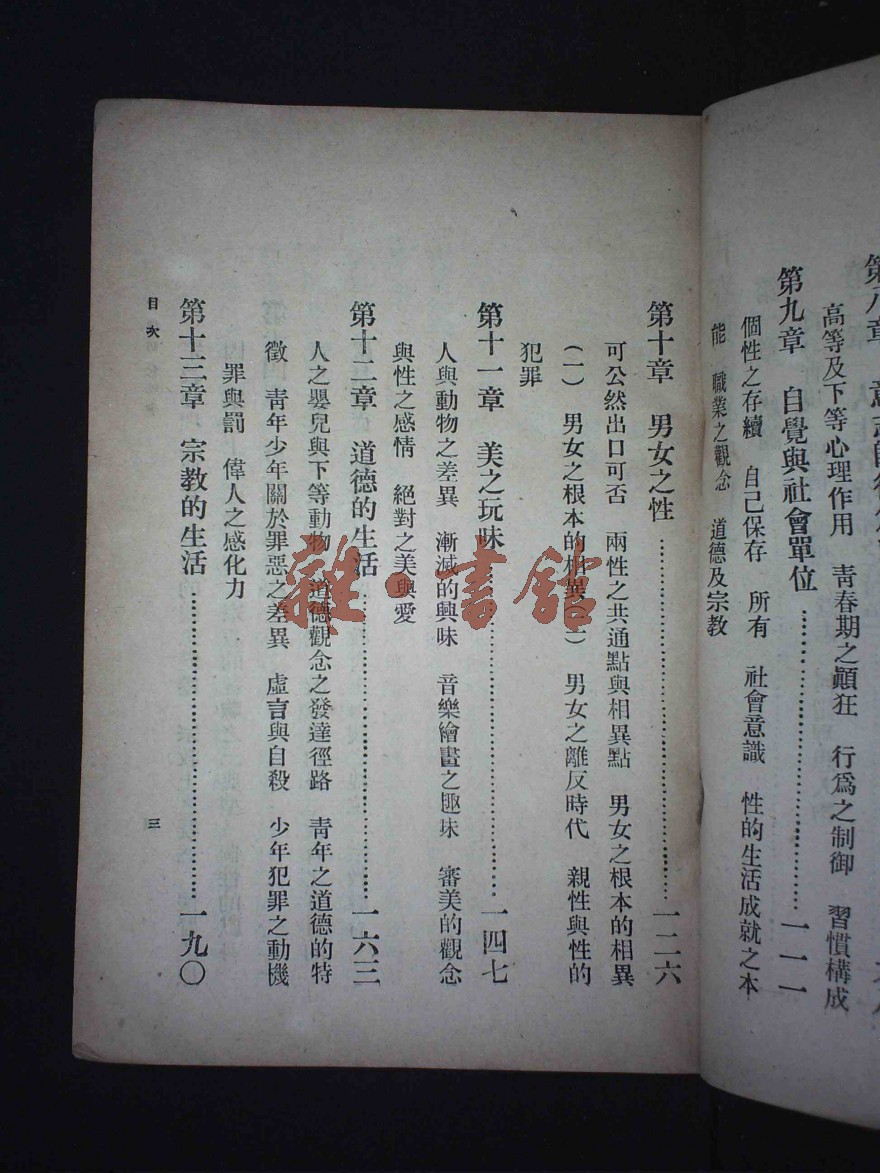 高等及下等心理作用　青春期之顚狂　行爲之制御　習慣構成
第九章　自覺與社會單位…………一一一
個性之存續　自己保存　所有　社會意識　性的生活成就之本
能　職業之觀念　道德及宗敎
第十章　男女之性…………一二六
可公然出口可否　兩性之共通點與相異點　男女之根本的相異
（一）　男女之根本的相異（二）　男女之離反時代　親性與性的
犯罪
第十一章　美之玩味…………一四七
人與動物之差異　漸減的興味　音樂繪畫之趣味　審美的觀念
與性之感情　絕對之美與愛
第十二章　道德的生活…………一六三
人之嬰兒與下等動物　道德觀念之發達徑路　靑年之道德的特
徵　靑年少年關於罪惡之差異　虛言與自殺　少年犯罪之動機
罪與罰　偉人之感化力
第十三章　宗敎的生活…………一九〇
目次
三
雜·書館